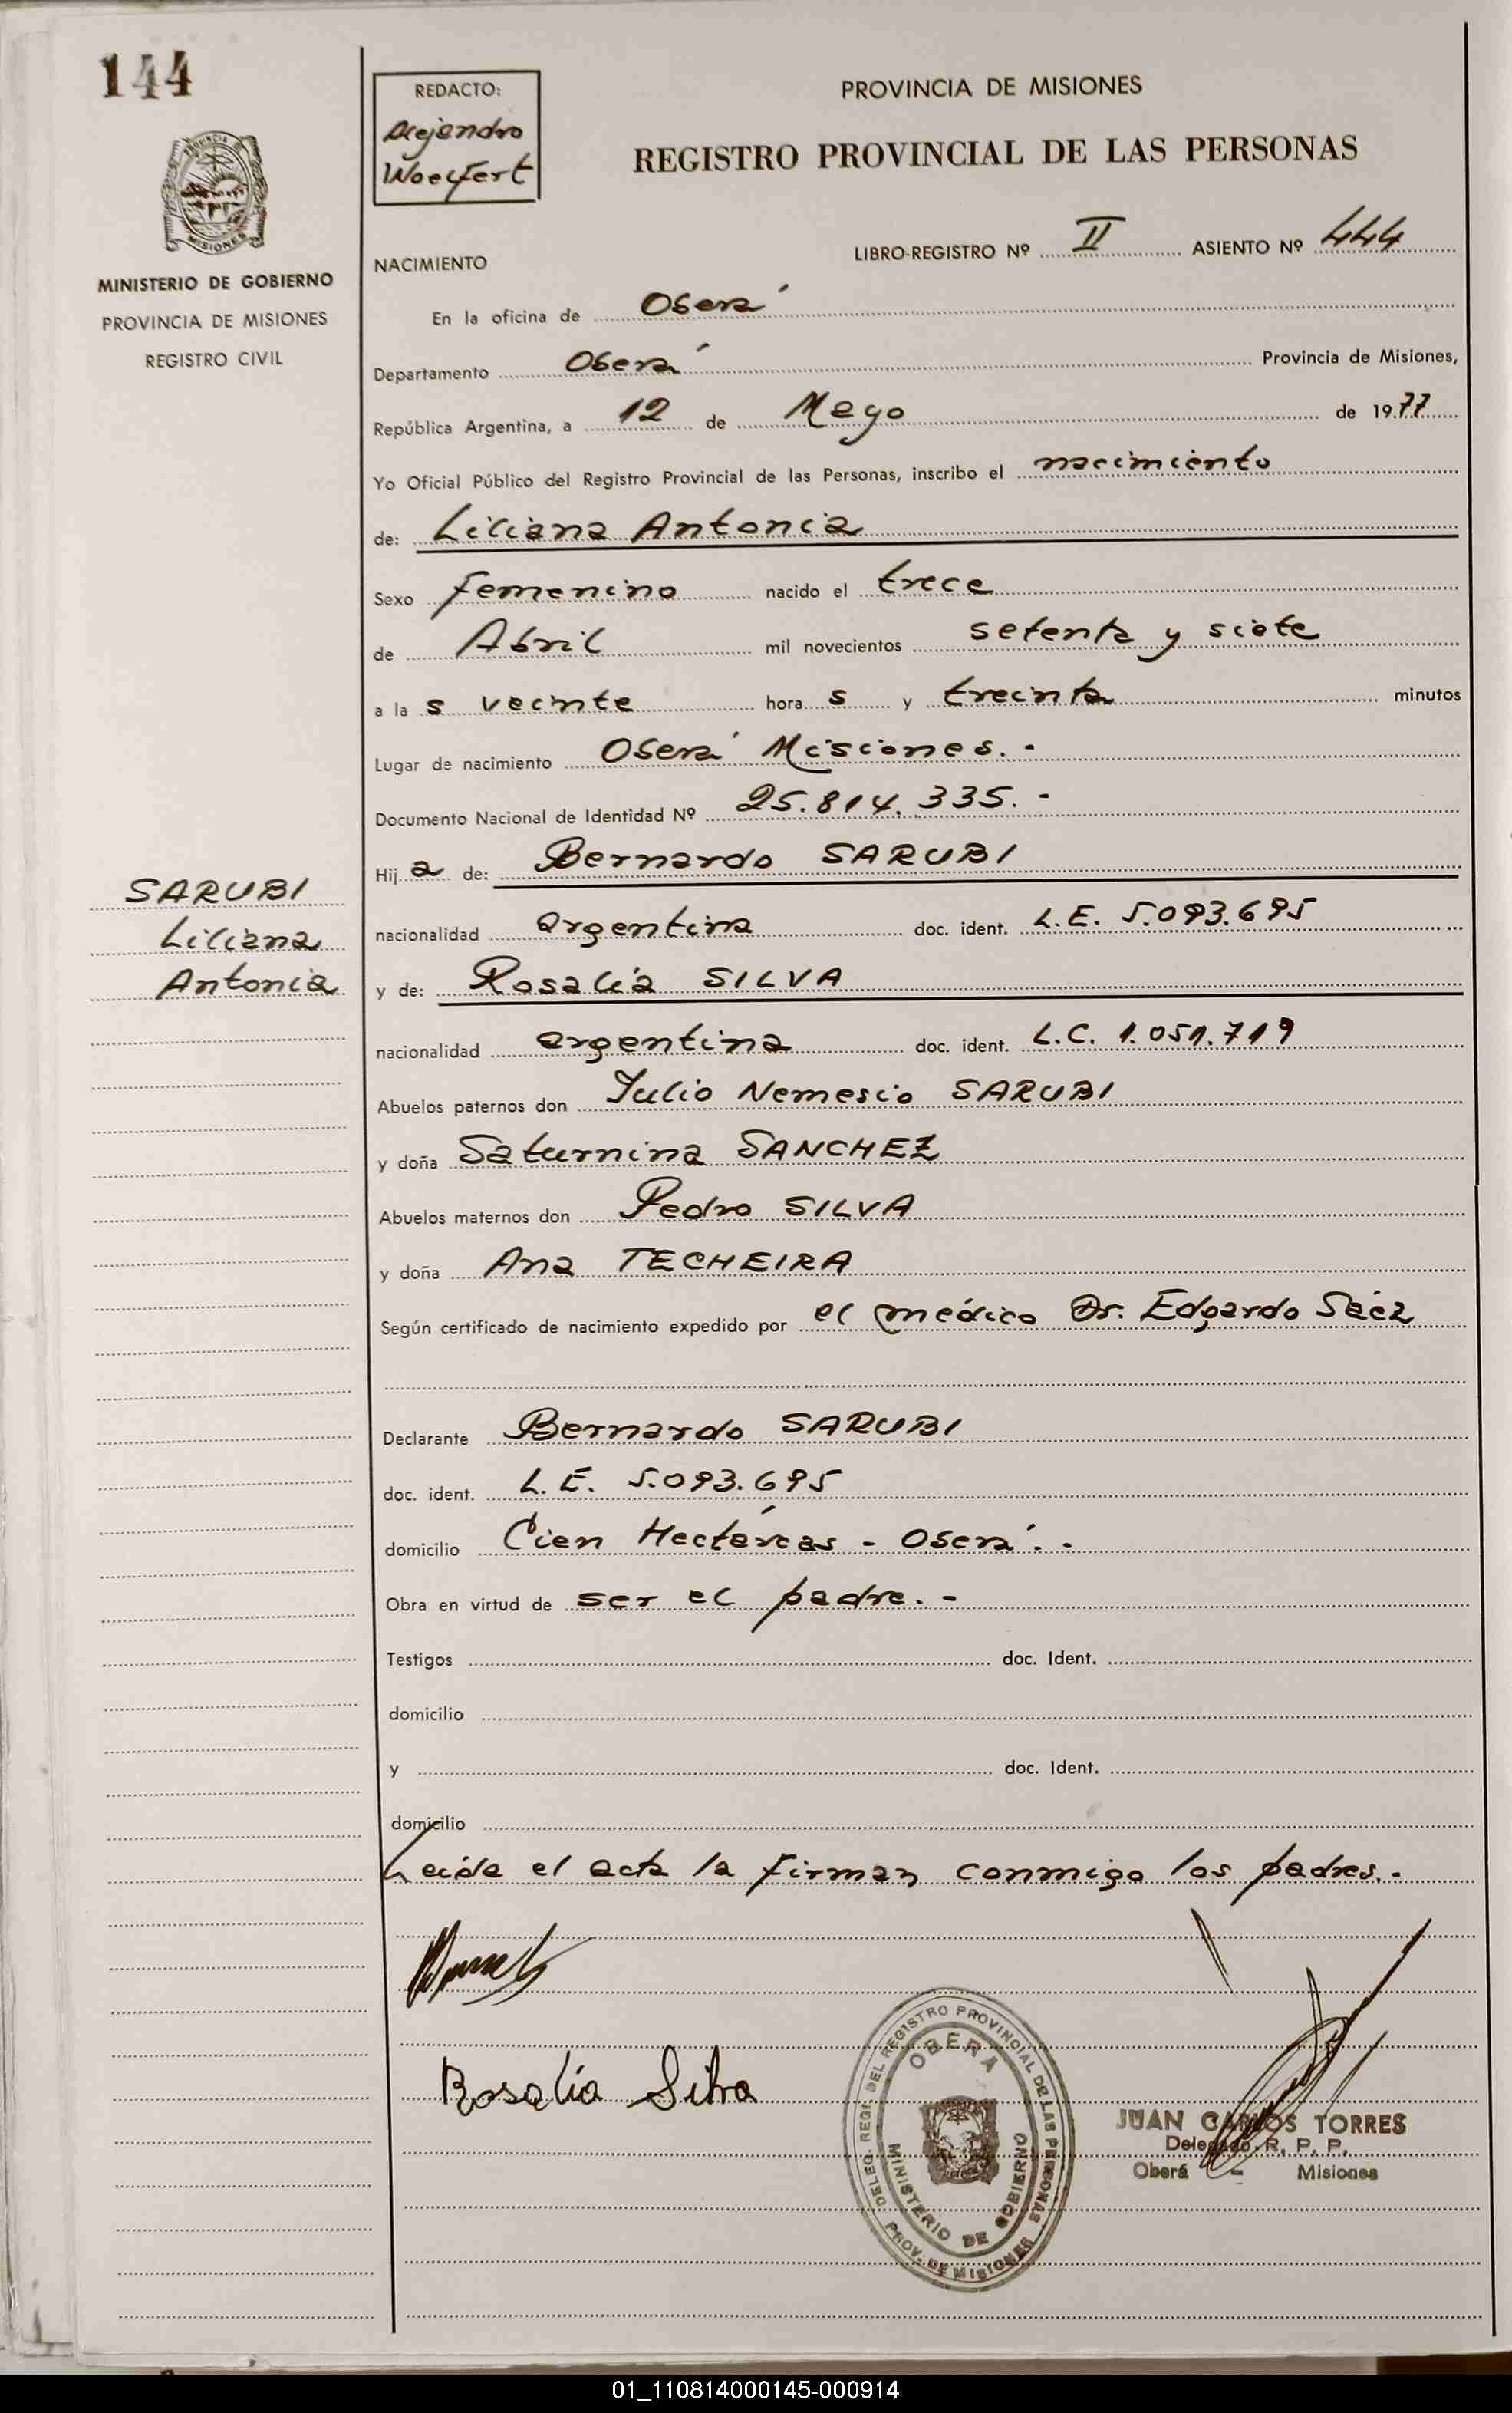 144
REDACTO:
Alejandro
Woelfert
PROVINCIA DE MISIONES
REGISTRO PROVINCIAL DE LAS PERSONAS
MISIONES
MINISTERIO DE GOBIERNO
PROVINCIA DE MISIONES
REGISTRO CIVIL
LIBRO-REGISTRO Nº II ASIENTO Nº 444
NACIMIENTO
En la oficina de Oberá
Departamento Oberá Provincia de Misiones,
República Argentina, a 12 de Mayo de 1977
Yo Oficial Público del Registro Provincial de las Personas, inscribo el nacimiento
de: Liliana Antonia
Sexo femenino nacido el trece
de Abril mil novecientos setenta y siete
a la s veinte hora s y treinta minutos
Lugar de nacimiento Oberá Misiones.-
Documento Nacional de Identidad Nº 25.814.335.-
Hij a de: Bernardo SARUBI
SARUBI
Liliana
Antonia
nacionalidad argentina doc. ident. L.E. 5.093.695
y de: Rosalía SILVA
nacionalidad argentina doc. ident. L.C. 1.051.719
Abuelos paternos don Julio Nemesio SARUBI
y doña Saturnina SANCHEZ
Abuelos maternos don Pedro SILVA
y doña Ana TECHEIRA
Según certificado de nacimiento expedido por el médico Dr. Edgardo Sáez
Declarante Bernardo SARUBI
doc. ident. L.E. 5.093.695
domicilio Cien Hectáreas - Oberá.-
Obra en virtud de ser el padre.-
Testigos doc. Ident.
domicilio
y doc. Ident.
domicilio
Leída el acta la firman conmigo los padres.-
Rosalía Silva
DELEG. REGI. DEL REGISTRO PROVINCIAL DE LAS PERSONAS
OBERA
MINISTERIO DE GOBIERNO
PROV. DE MISIONES
JUAN CARLOS TORRES
Delegado R. P. P.
Oberá - Misiones
01_110814000145-000914